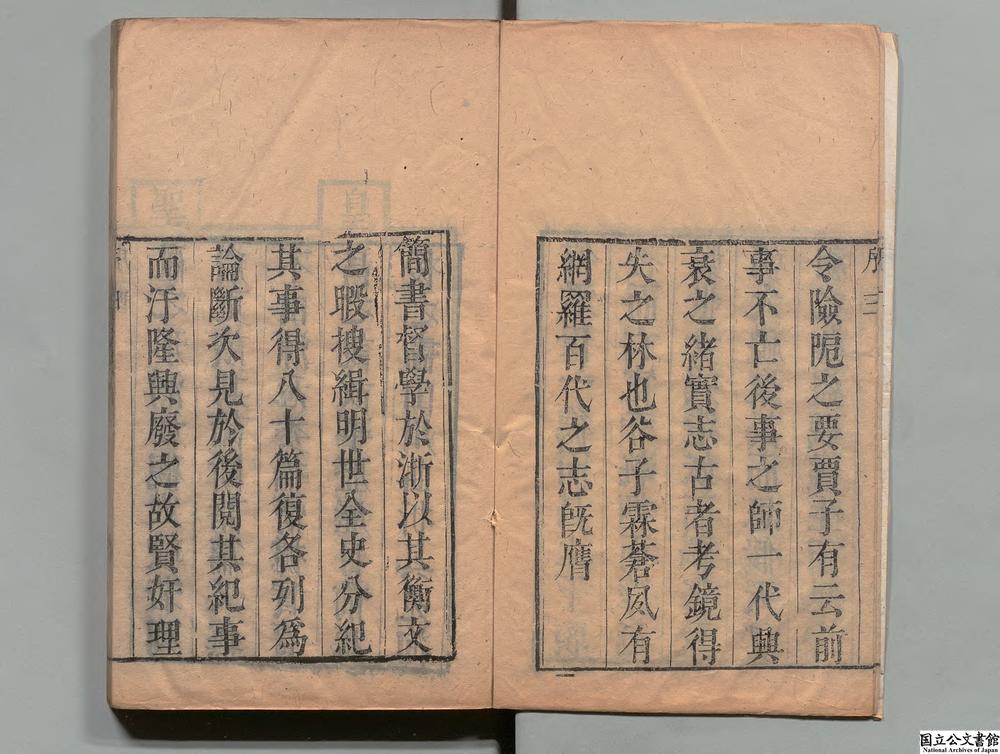 令險阨之要賈子有云前
事不亡後事之師一代興
衰之緒實志古者考鏡得
失之林也谷子霖蒼夙有
網羅百代之志旣膺
簡書督學於浙以其衡文
之暇搜緝明世全史分紀
其事得八十篇復各列為
論斷次見於後閱其紀事
而汙隆興廢之故賢奸理
国立公文書館
National Archives of Japan